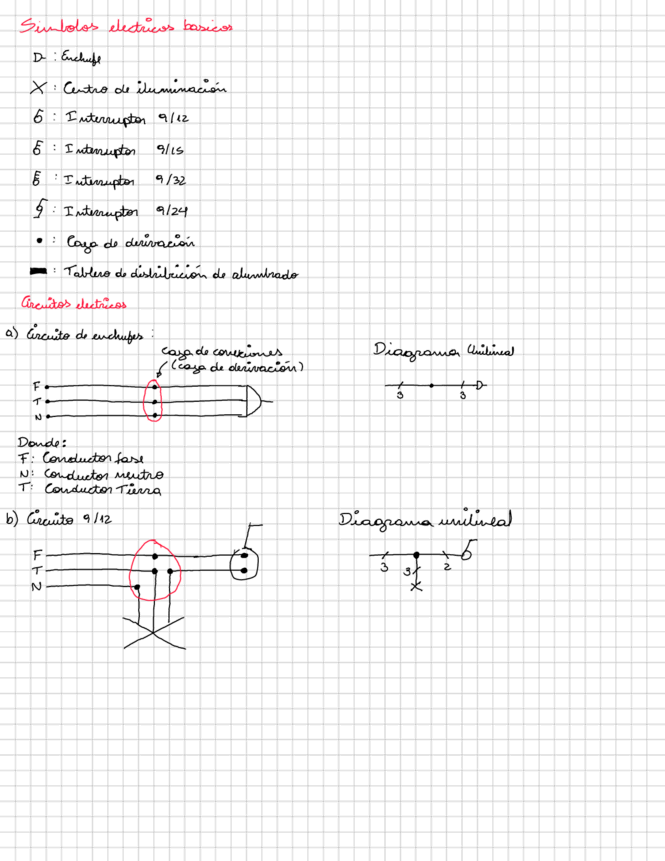 Simbolos electricos basicos
D : Enchufe
X : Centro de iluminación
: Interruptor 9/12
: Interruptor 9/15
: Interruptor 9/32
: Interruptor 9/24
• : Caja de derivación
: Tablero de distribución de alumbrado
Circuitos electricos
a) Circuito de enchufes :
caja de conexiones
(caja de derivación)
F
T
N
Diagrama Unilineal
3 3
Donde:
F: Conductor fase
N: Conductor neutro
T: Conductor Tierra
b) Circuito 9/12
F
T
N
Diagrama unilineal
3 3 2